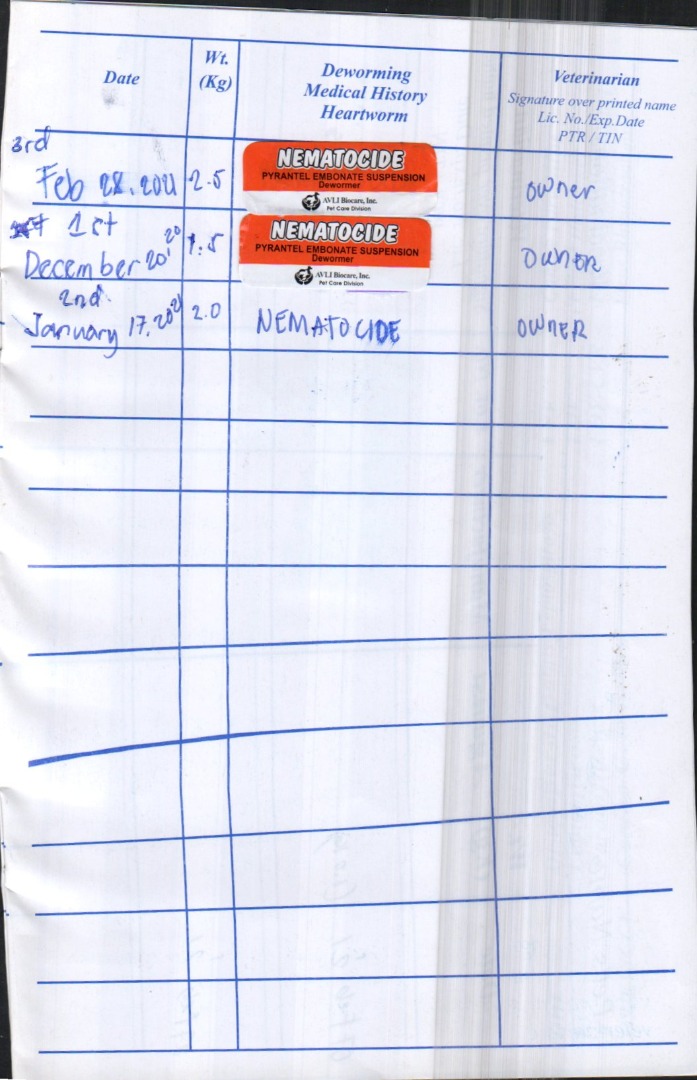 Date
Wt.
(Kg)
Deworming
Medical History
Heartworm
Veterinarian
Signature over printed name
Lic. No./Exp.Date
PTR / TIN
3rd
Feb 28, 2021
2.5
NEMATOCIDE
PYRANTEL EMBONATE SUSPENSION
Dewormer
AVLI Biocare, Inc.
Pet Care Division
owner
1st
December 20, 20
1.5
NEMATOCIDE
PYRANTEL EMBONATE SUSPENSION
Dewormer
AVLI Biocare, Inc.
Pet Care Division
OwnER
2nd
January 17, 2021
2.0
NEMATOCIDE
OWNER